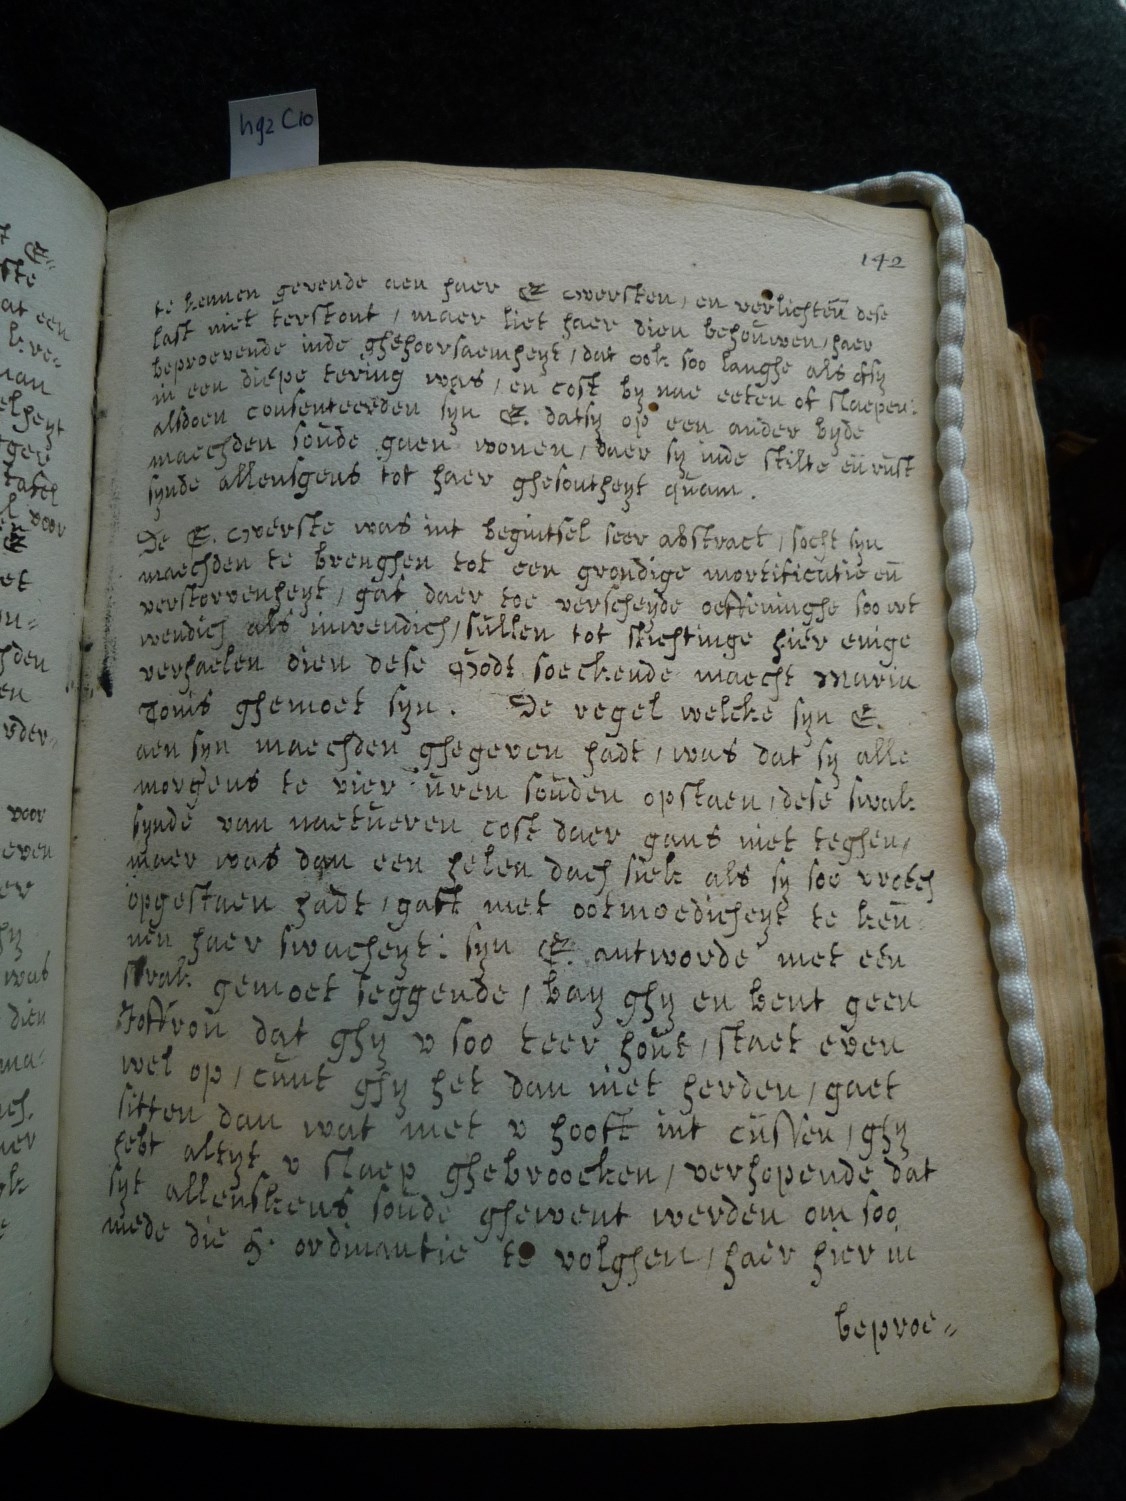 hg2 C10
142
te kennen gevende aen haer E oversten, en verlichten dese
last niet terstont, maer liet haer dien behouwen, haer
beproevende inde ghehoorsaemheyt, dat ook soo langhe als sy
in een diepe tering was, en cost by nae eeten of slaepen:
alsdoen consenteerden syn E. datsy op een ander byde
maechden soude gaen wonen, daer sy inde stilte en rust
synde allensgens tot haer ghesontheyt quam.
De E. overste was int begintsel seer abstract, socht syn
maechden te brenghen tot een grondige mortificatie en
verstorvenheyt, gaf daer toe verscheyde oeffeninghe soo wt
wendich als inwendich, sullen tot stichtinge hier enige
verhaelen dien dese Godt soeckende maecht Maria
Jonis ghemoet syn. De regel welcke syn E.
aen syn maechden ghegeven hadt, was dat sy alle
morgens te vier uren souden opstaen, dese swak
synde van naetueren cost daer gans niet teghen,
maer was dan een helen dach siek als sy soo vroech
opgestaen hadt, gaff met ootmoedicheyt te ken
nen haer swacheyt: syn E. antworde met een
strak gemoet seggende, bay ghy en bent geen
Joffrou dat ghy v soo teer hout, staet even
wel op, cunt ghy het dan niet herden, gaet
sitten dan wat met v hooft int cussen, ghy
hebt altyt v slaep ghebroocken, verhopende dat
syt allenskens soude ghewent werden om soo
mede die H. ordinantie te volghen, haer hier in
beproe=